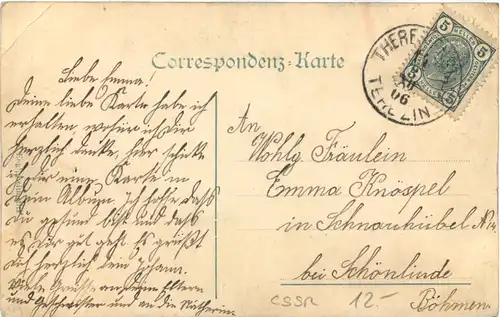 Correspondenz-Karte
5 HELLER 5
THERE
06
TEREZIN
Liebe Emma!
Deine liebe Karte habe ich
erhalten, wofür ich dir
herzlich danke, hier schicke
ich Dir eine Karte in
Dein Album. Ich hoffe daß
Du gesund bist und daß
es Dir gut geht. Es grüßt
dich herzlich dein Johann.
Viele Grüße an deine Eltern
und Geschwister und an die Katherina
An
Wohlg. Fräulein
Emma Knöspel
in Schnauhübel N: 14
bei Schönlinde
Böhmen
CSSR 12-